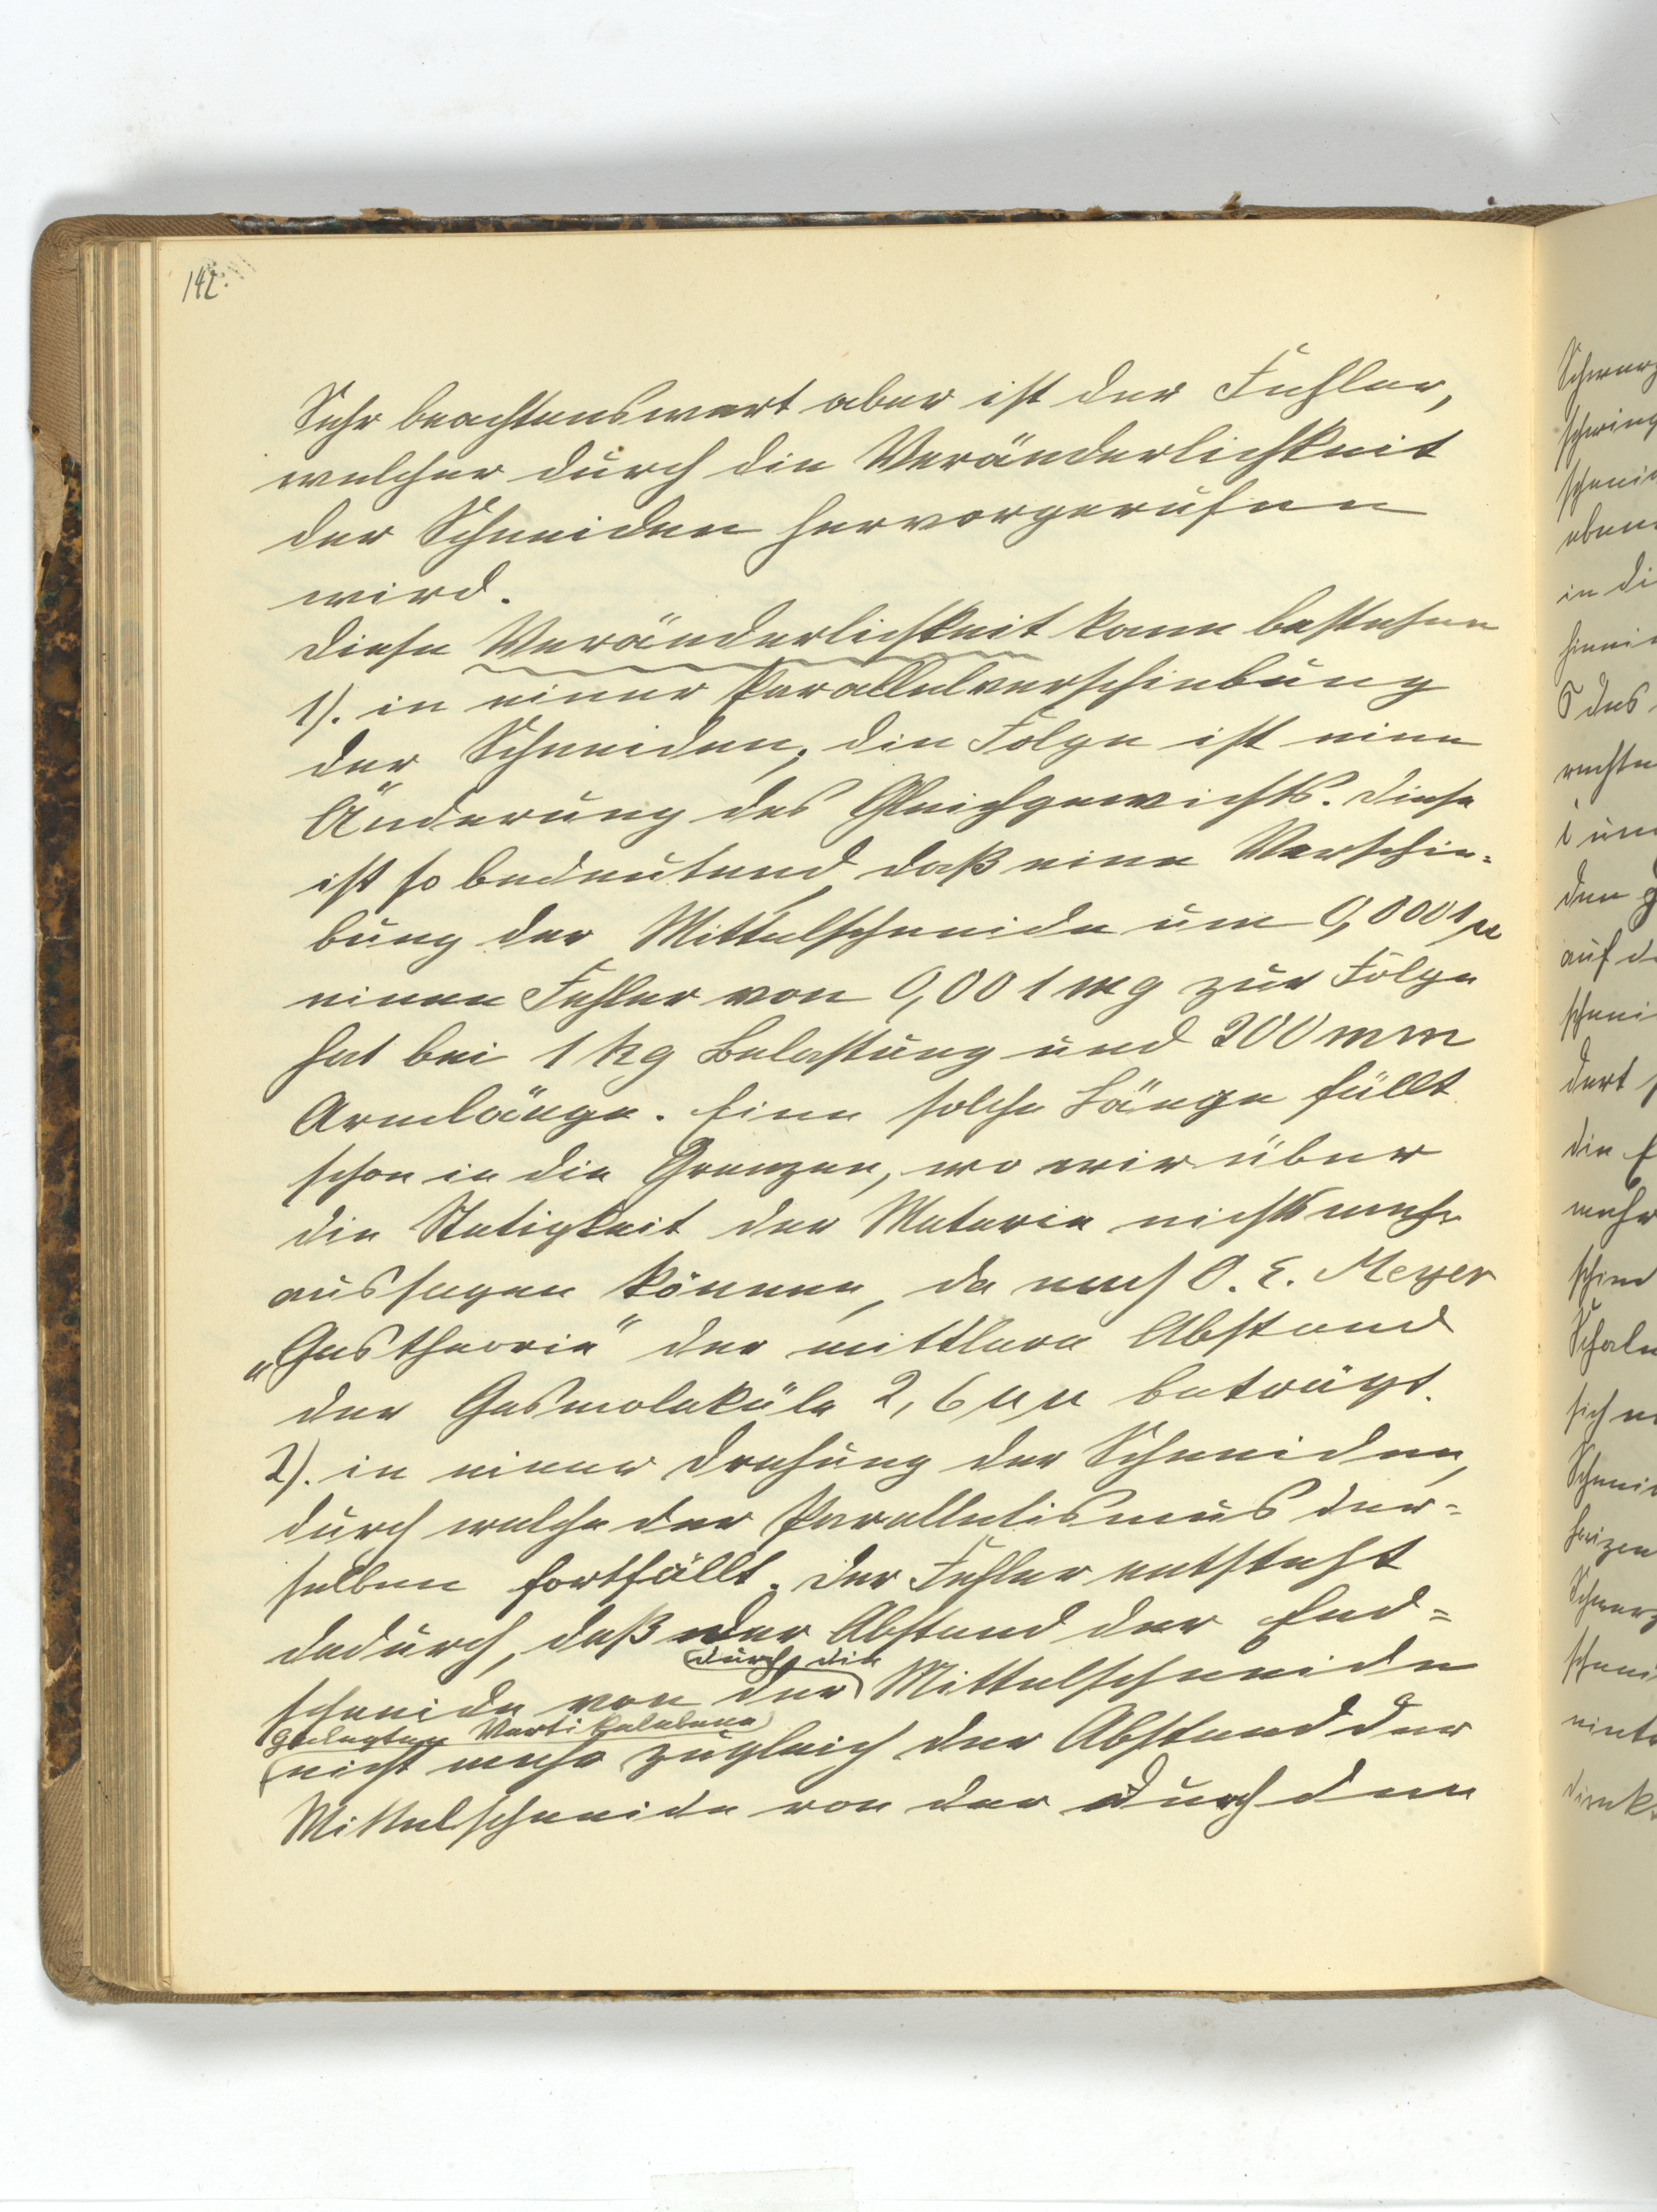 142.
Sehr beachtenswert aber ist der Fehler,
welcher durch die Veränderlichkeit
der Schneiden hervorgerufen
wird.
Diese Veränderlichkeit kann bestehen
1). in einer Parallelverschiebung
der Schneiden; die Folge ist eine
Änderung des Gleichgewichts. Diese
ist so bedeutend, daß eine Verschie-
bung der Mittelschneide um 0,0001 µ
einen Fehler von 0,001 mg zur Folge
hat bei 1 kg Belastung und 200 mm
Armlänge. Eine solche Länge fällt
schon in die Grenzen, wo wir über
die Stetigkeit der Materie nichts mehr
aussagen können, da nach O. E. Meyer
„Gastheorie“ der mittlere Abstand
der Gasmoleküle 2,6 µµ beträgt.
2). in einer Drehung der Schneiden,
durch welche der Parallelismus der-
selben fortfällt. Der Fehler entsteht
dadurch, daß der Abstand der End-
durch die
schneide von der Mittelschneide
gelegten Vertikalebene
nicht mehr zugleich der Abstand der
Mittelschneide von der durch den
Schwerp
schwing
schneid
eben
in di
hinein
des
rechte
i um
den g
auf d
schnei
dert
die E
mehr
schied
Schale
sich
Schneid
heizen
Schwerp
schnei
eint
direkt